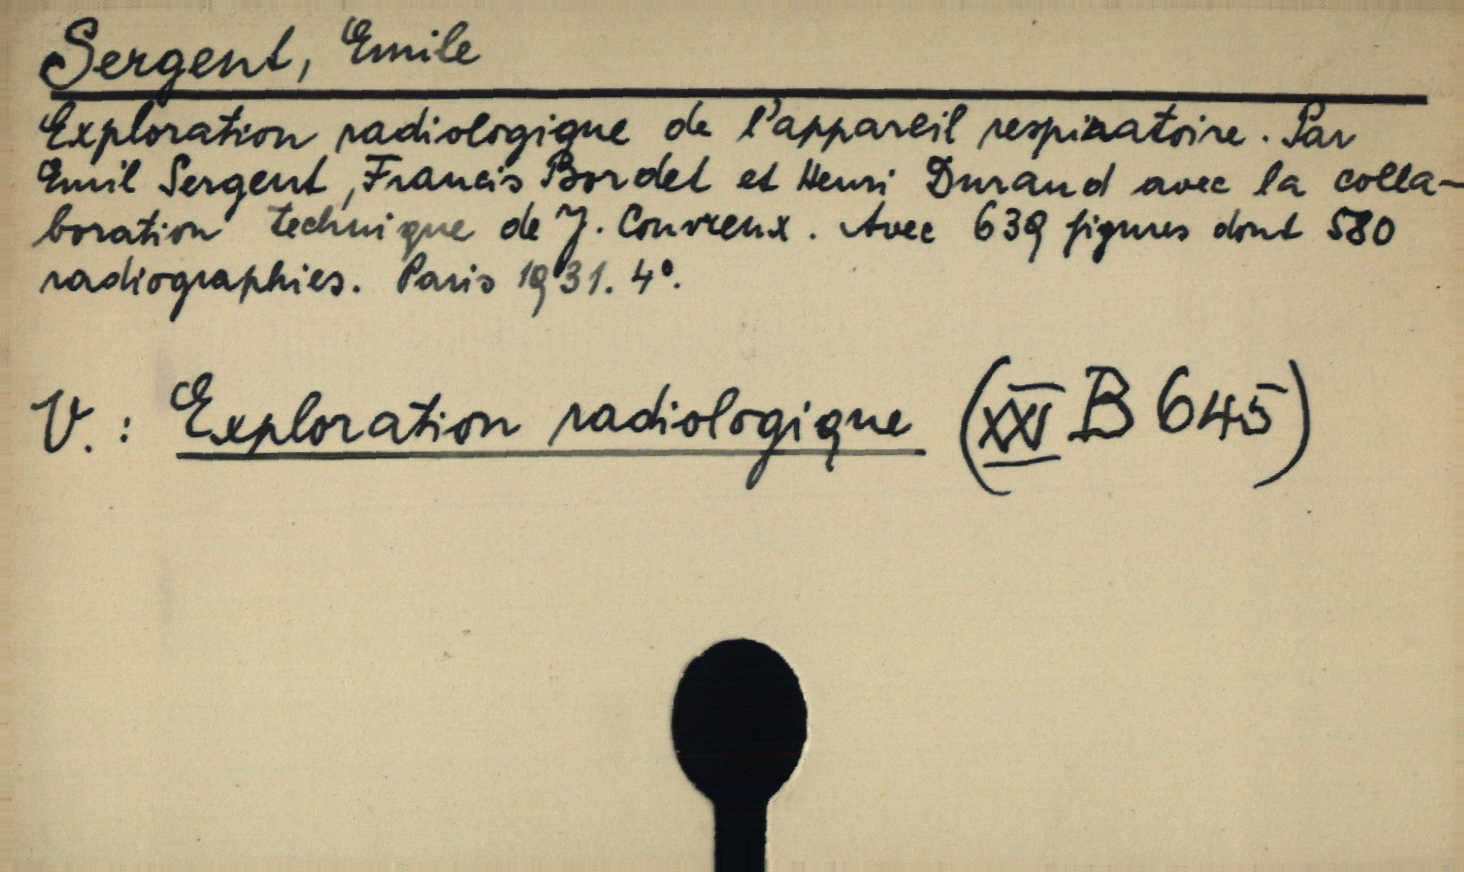 Sergent, Emile
Exploration radiologique de l'appareil respiratoire. Par
Emil Sergent, Francis Bordet et Henri Durand avec la colla-
boration technique de J. Couvreux. Avec 639 figures dont 580
radiographies. Paris 1931. 4°.
V.: Exploration radiologique (XXI B 645)